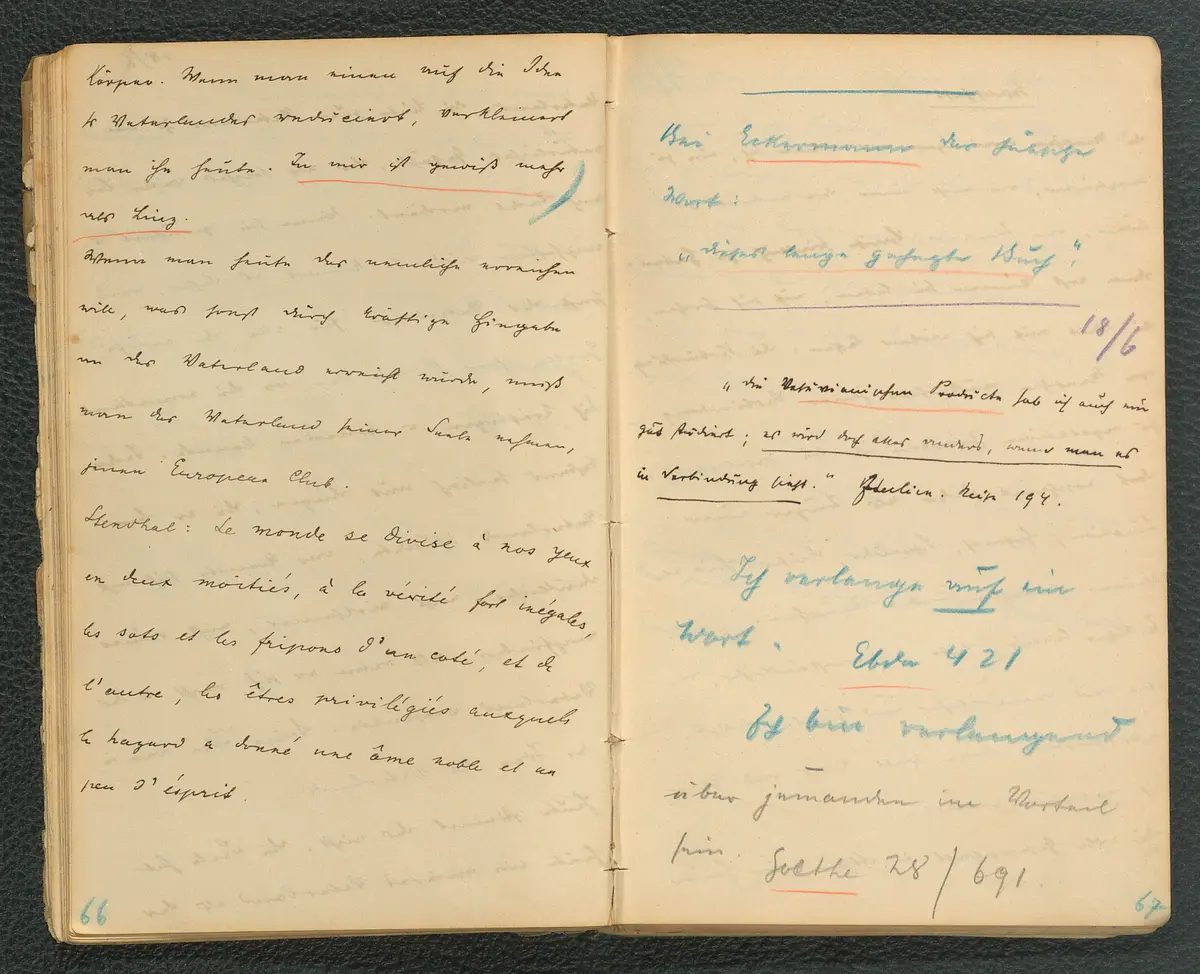 Körper. Wenn man einen auf die Idee
Vaterlandes reducirt, verkleinert
man ihn heute. In mir ist gewiß mehr
als Linz.
Wenn man heute das nemliche erreichen
will, was sonst durch kräftige Hingabe
an das Vaterland erreicht wurde, muß
man das Vaterland seiner Seele nehmen,
jenen European Club.
Stendhal: Le monde se divise à nos yeux
en deux moitiés, à la vérité fort inégales,
les sots et les fripons d'un coté, et de
l'autre, les êtres privilégiés auxquels
le hazard a donné une âme noble et un
peu d'ésprit.
66
Bei Eckermann das hübsche
Wort:
„dieses lange gehegte Buch".
18/6
„die Vesuvianischen Producte hab ich auch nun
gut studiert; es wird doch alles anders, wenn man es
in Verbindung sieht." Italien. Reise 194.
Ich verlange auf ein
Wort.
Ebda 421
Ich bin verlangend
über jemanden im Vorteil
sein.
Goethe 28/691.
67